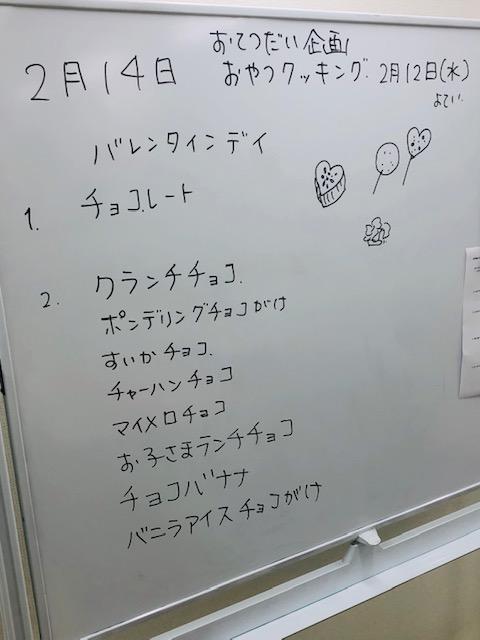 おてつだい企画
2月14日 おやつクッキング 2月12日(水)
よてい
バレンタインデイ
1. チョコレート
2. クランチチョコ
ポンデリングチョコがけ
すいかチョコ
チャーハンチョコ
マイメロチョコ
お子さまランチチョコ
チョコバナナ
バニラアイスチョコがけ